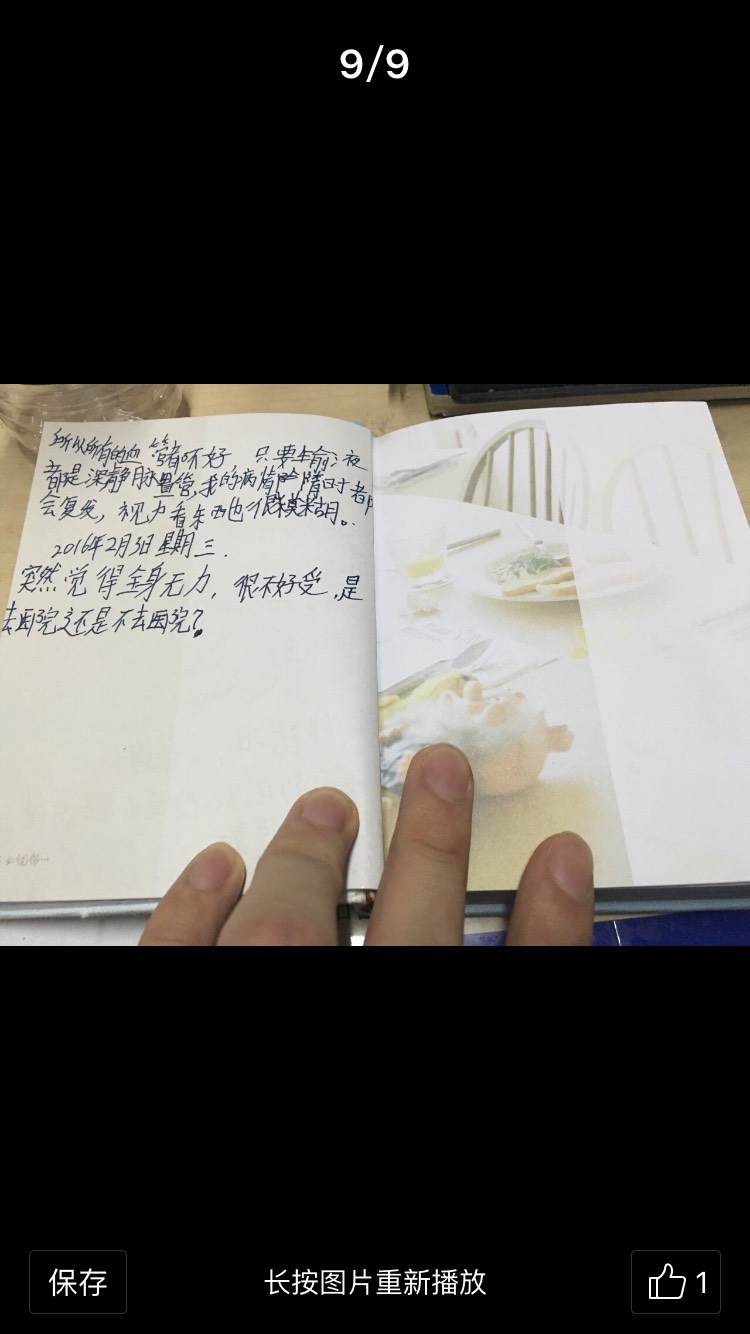 9/9
所以所有的血管都不好 只要车输液
都是深静脉置管,我的病情随时都
会复发,视力看东西也很模糊。
2016年2月3日 星期三.
突然觉得全身无力,很不好受,是
去医院还是不去医院?
保存
长按图片重新播放
1